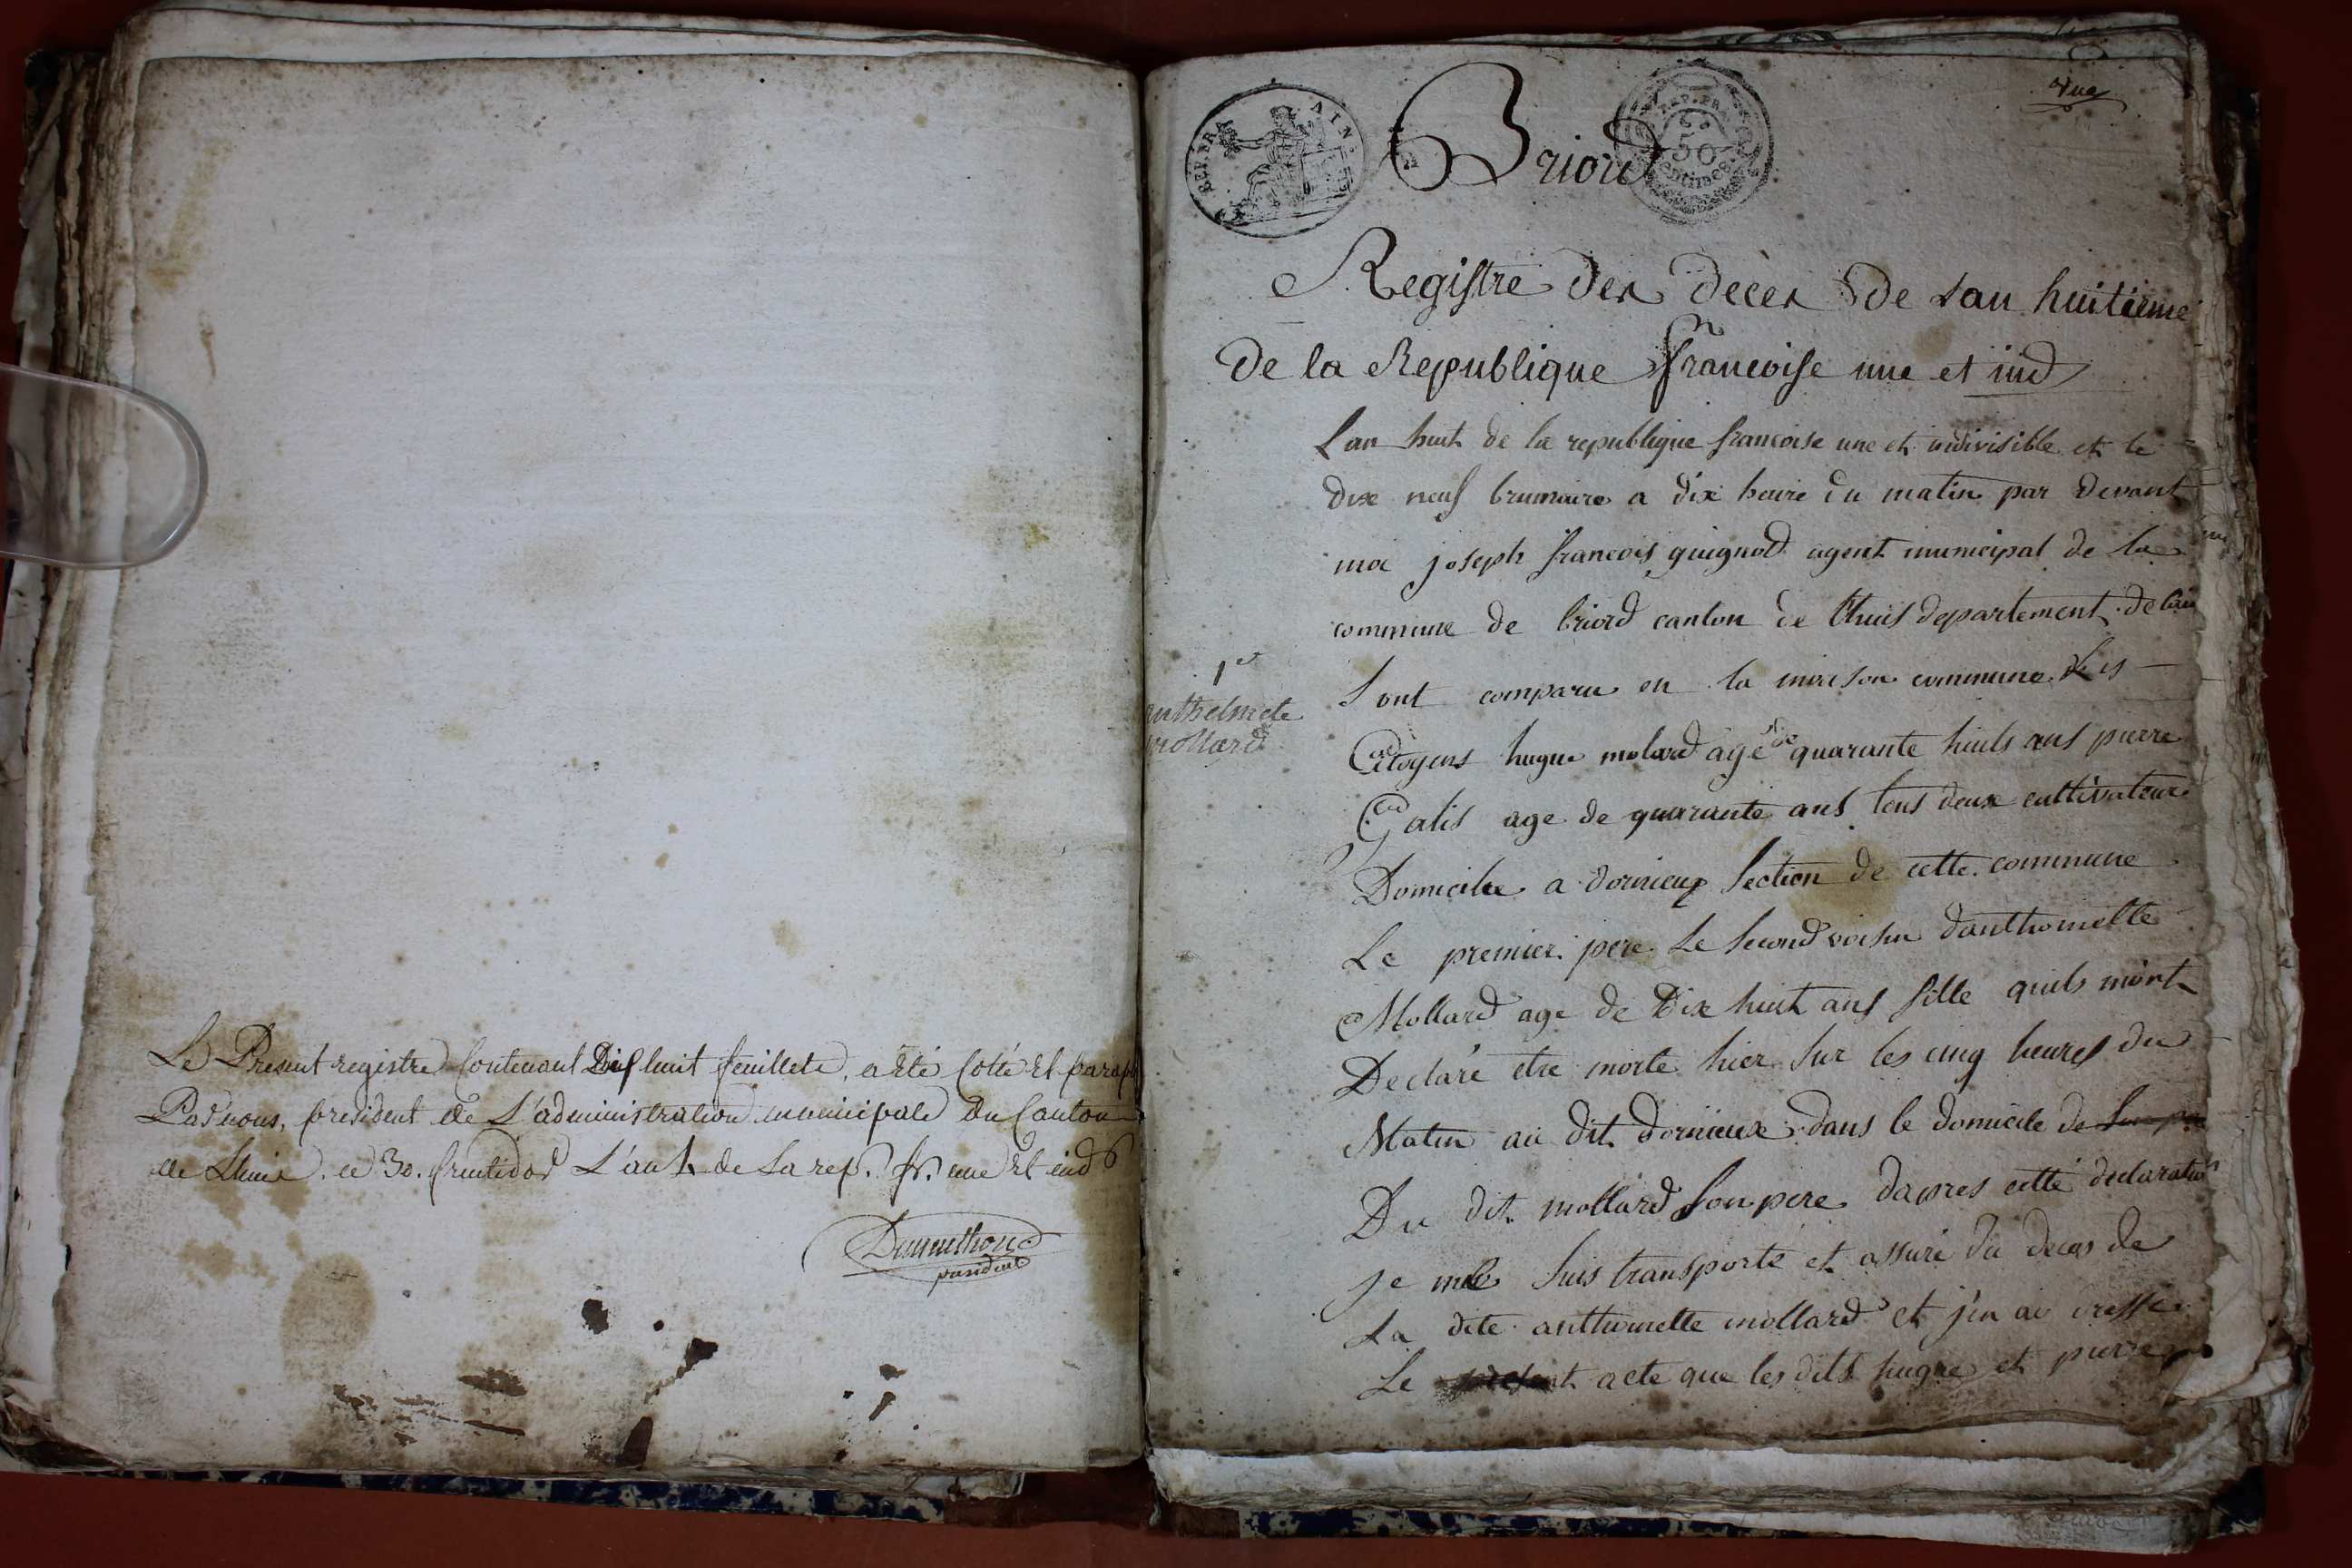 Le Present registre Contenant Dix huit feuillets, a été Cotté Et paraph
Par nous, president de L'administration municipale du Canton
de Lhuis. ce 30. fructidor L'an 7. de La rep. fr. une Et ind
president
REP. FRA
AIN
REP. FRA
50
centimes
Briord
une
Registre des decès de Lan huitieme
De la Republique francoise une et ind
Lan huit de la republique francoise une et indivisible et le
dix neuf brumaire a dix heure du matin par devant
moi joseph francois guignod agent municipal de la
commune de briord canton de lhuis departement de lain
Sont comparu en la maison commune Les
Citoyens hugue molard agé de quarante huits ans pierre
Galis age de quarante ans tous deux cultivateur
Domicilie a dornieux Section de cette commune
Le premier pere Le Second voisin danthoinette
Mollard age de Dix huit ans fille quils mont
Declaré etre morte hier Sur les cinq heures du
Matin au dit dornieux dans le domicile de Son pere
Du dit mollard Son pere dapres cette declaration
je me Suis transporté et assuré du deces de
La dite anthoinette mollard et j'en ai dressé
Le present acte que les dits hugue et pierre
1er
anthelmete
mollard